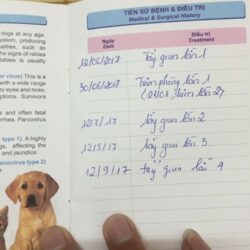 dogs at any age.
system, producing
such as
signs of rabies
Rabies is usually
virus) This is
with a wide range
eyes and nose,
symptoms. Survivors
and often fatal
Parvovirus
type 1). A highly
affecting the
and jaundice.
type 2)
TIỀN SỬ BỆNH & ĐIỀU TRỊ
Medical & Surgical History
Ngày
Date
Điều trị
Treatment
/06/2017 Tẩy giun lần 1
30/06/2017 Tiêm phòng lần 1
(21/07, tiêm lần 2)
12/7/17 tẩy giun lần 2
12/8/17 tẩy giun lần 3.
12/9/17 tẩy giun lần 4